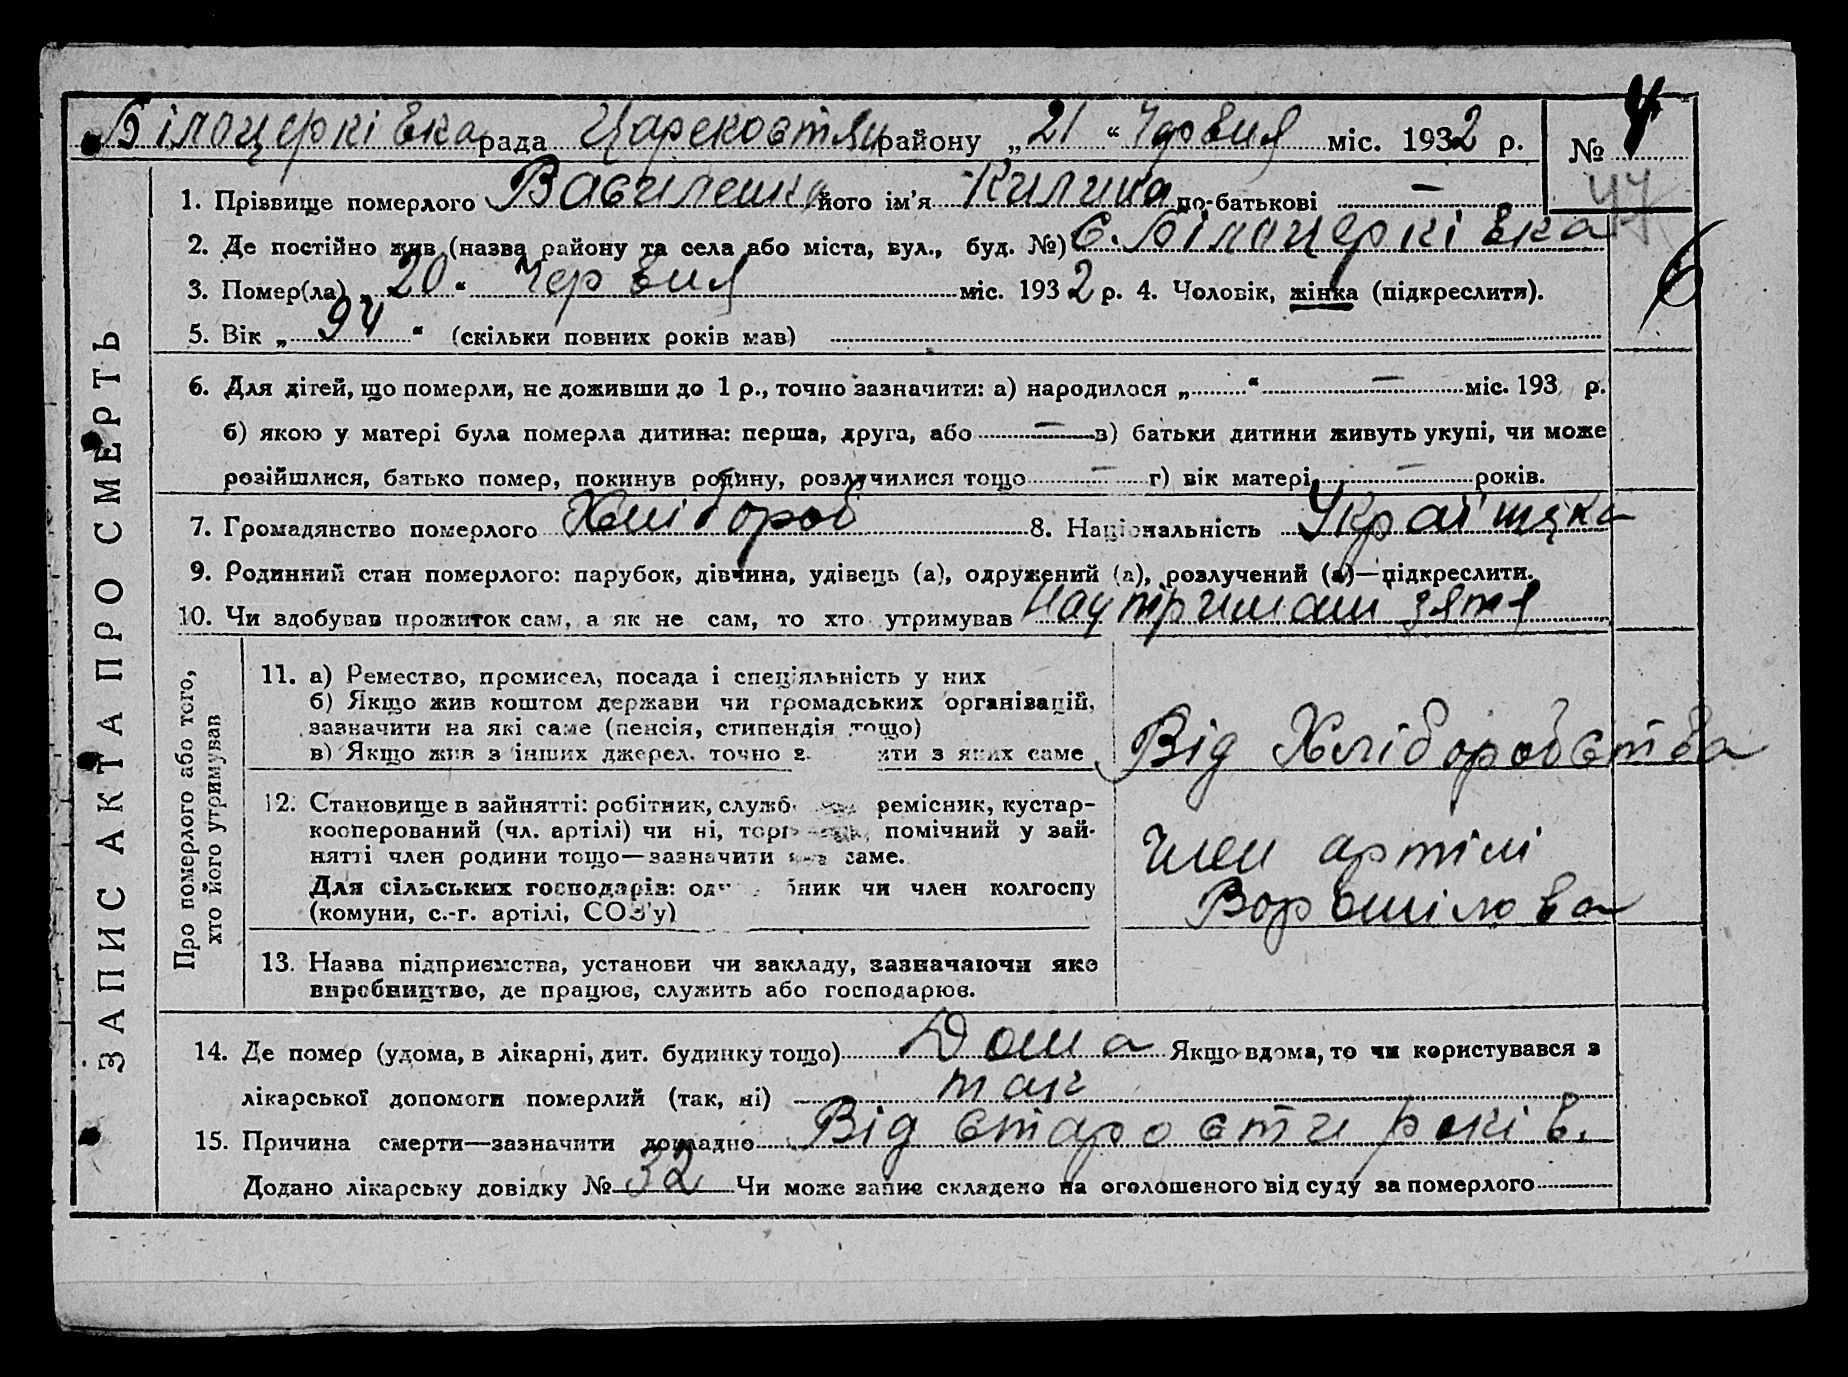 Білоцерківка рада Царекостян району „21“ Червня міс. 1932 р. № 4
47
1. Прізвище померлого Василешка його ім'я Килина по-батькові —
2. Де постійно жив (назва району та села або міста, вул., буд. №) С. Білоцерківка
6
3. Помер(ла) „20“ Червня міс. 1932 р. 4. Чоловік, жінка (підкреслити).
5. Вік „94“ (скільки повних років мав)
6. Для дітей, що померли, не доживши до 1 р., точно зазначити: а) народилося „ “ — міс. 193 р.
б) якою у матері була померла дитина: перша, друга, або — в) батьки дитини живуть укупі, чи може
розійшлися, батько помер, покинув родину, розлучилися тощо — г) вік матері — років.
7. Громадянство померлого Хлібороб 8. Національність Українка
9. Родинний стан померлого: парубок, дівчина, удівець (а), одружений (а), розлучений (а)—підкреслити.
10. Чи здобував прожиток сам, а як не сам, то хто утримував На утримані зятя
ЗАПИС АКТА ПРО СМЕРТЬ
Про померлого або того,
хто його утримував
11. а) Ремество, промисел, посада і спеціяльність у них
б) Якщо жив коштом держави чи громадських організацій,
зазначити на які саме (пенсія, стипендія тощо)
в) Якщо жив з інших джерел, точно з ити з яких саме
Від Хліборобства
12. Становище в зайнятті: робітник, служб ремісник, кустар-
кооперований (чл. артілі) чи ні, торг помічний у зай-
нятті член родини тощо—зазначити саме.
Для сільських господарів: од бник чи член колгоспу
(комуни, с.-г. артілі, СОЗ'у)
Член артілі
Ворошілова
13. Назва підприємства, установи чи закладу, зазначаючи яке
виробництво, де працює, служить або господарює.
14. Де помер (удома, в лікарні, дит. будинку тощо) Дома Якщо вдома, то чи користувався з
лікарської допомоги померлий (так, ні) так
15. Причина смерти—зазначити докладно Від старости років.
Додано лікарську довідку № 32 Чи може запис складено на оголошеного від суду за померлого